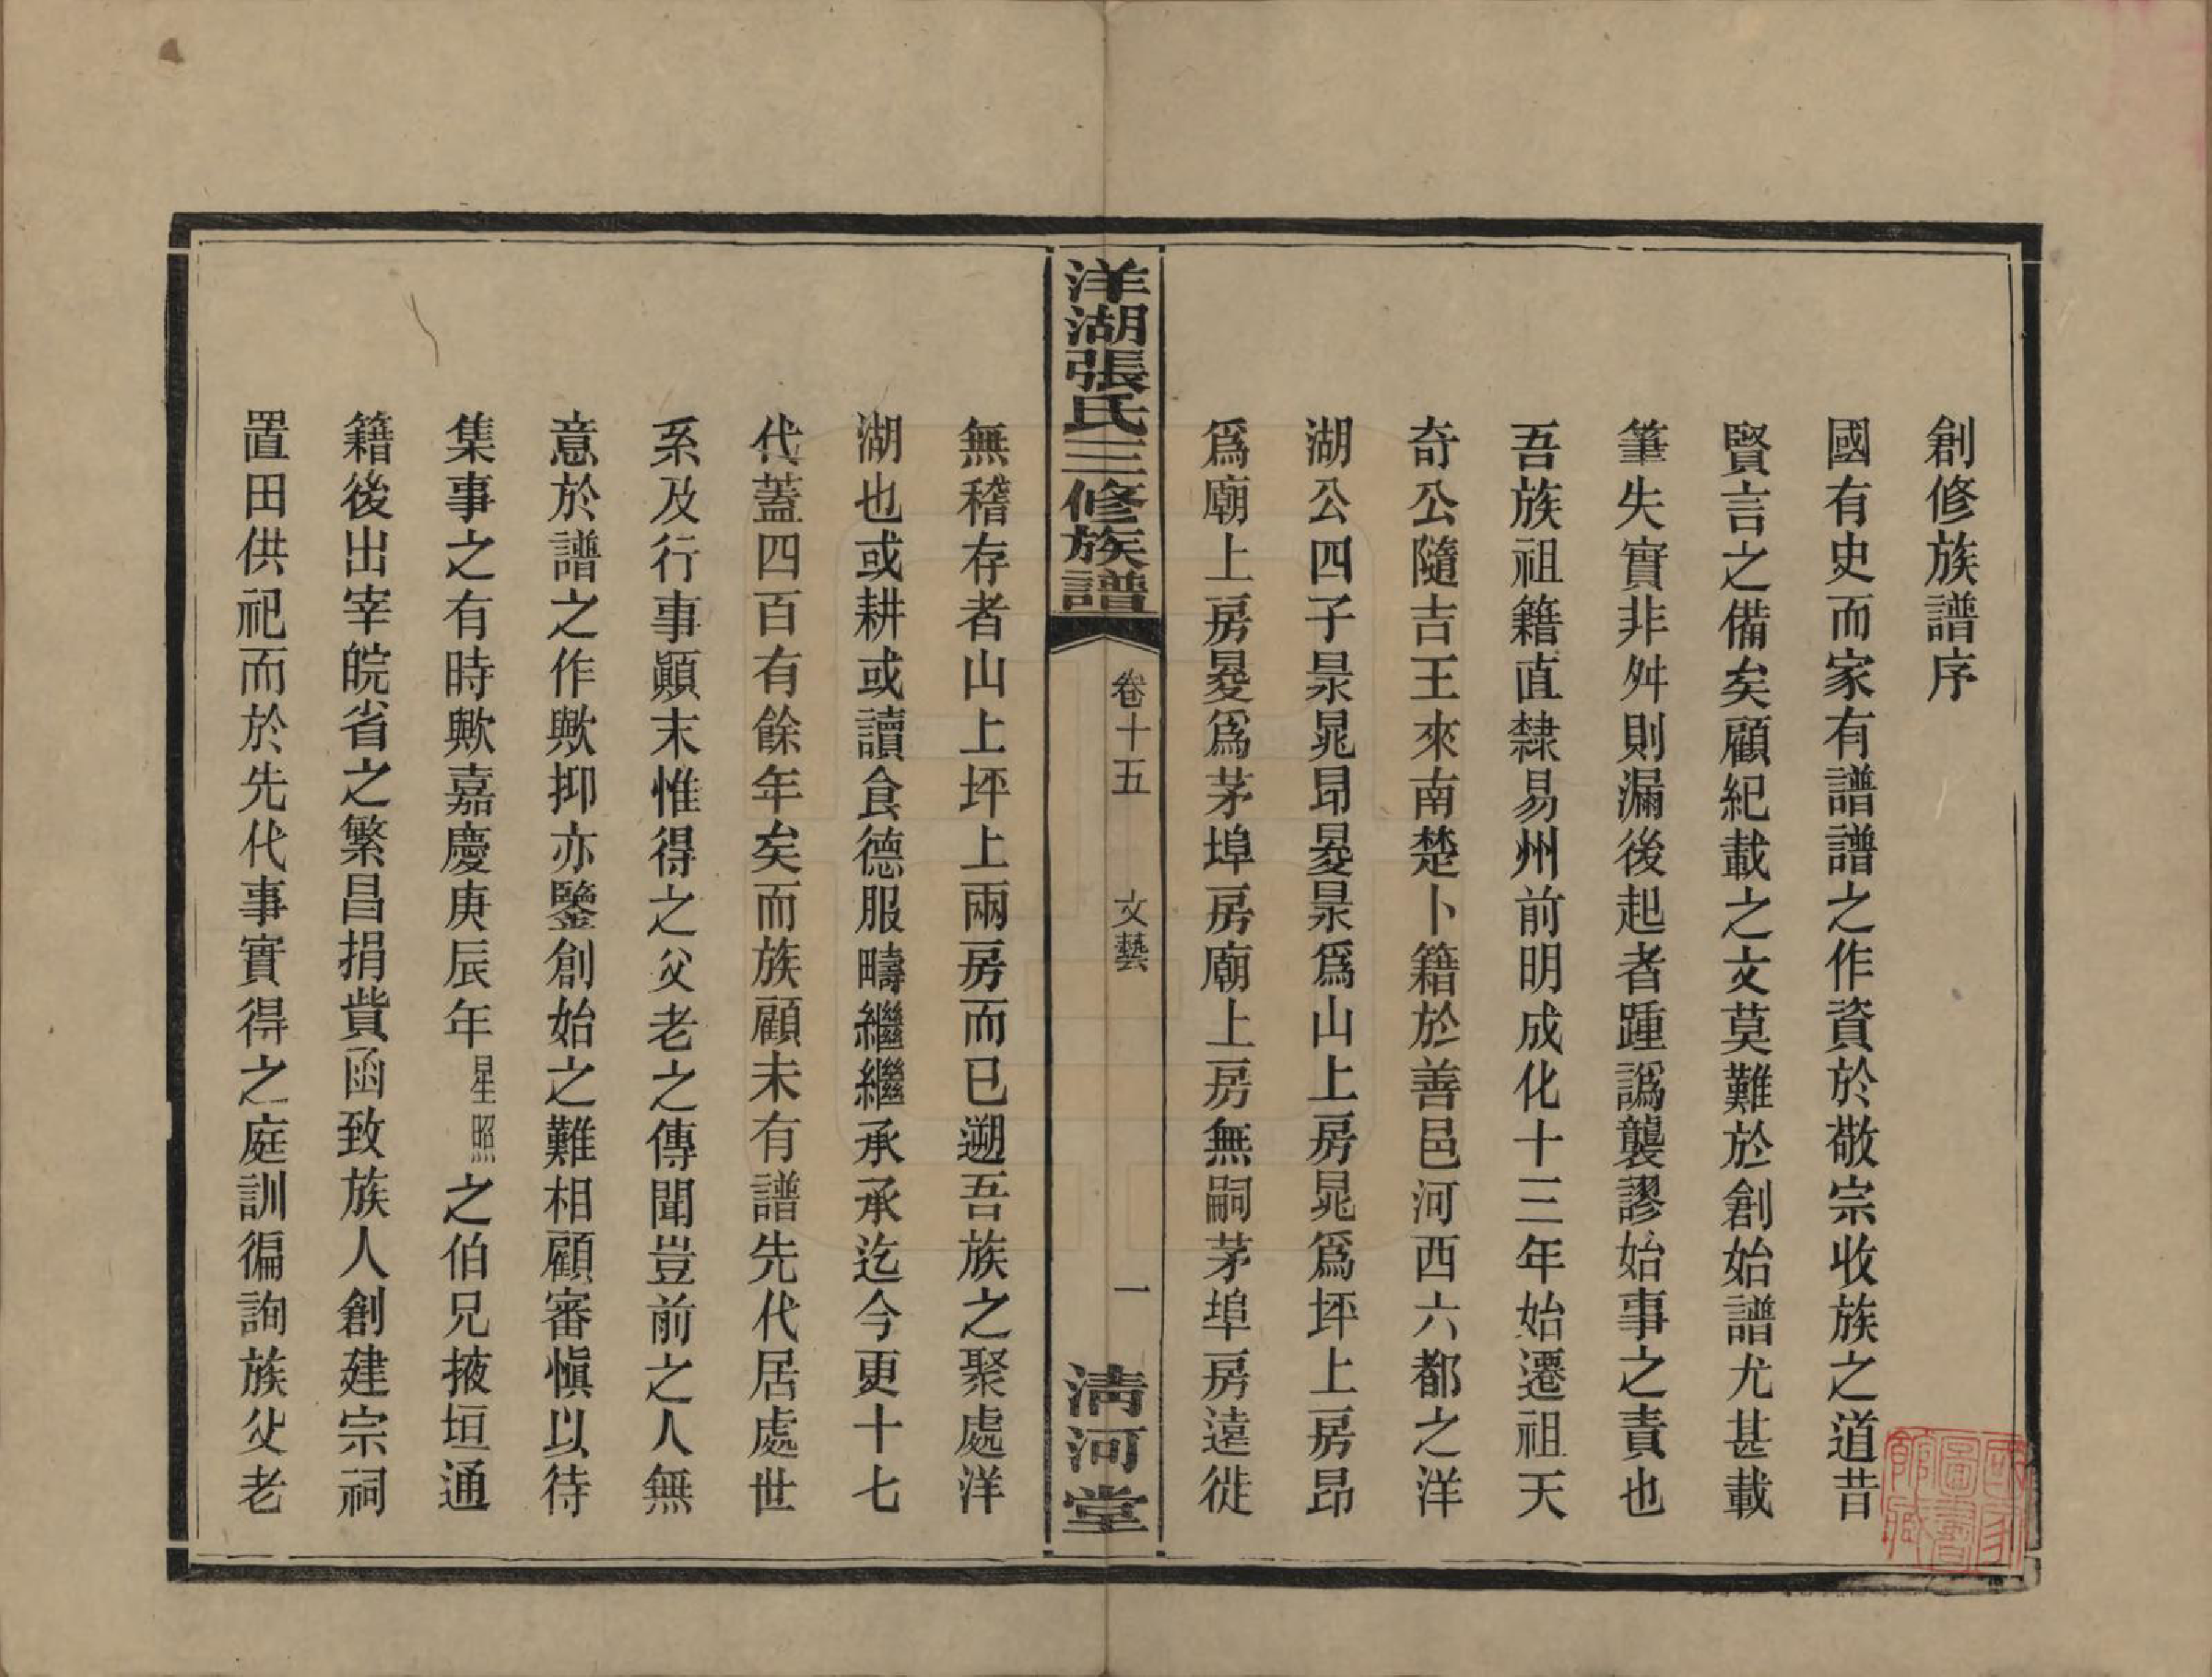 創修族譜序
國有史而家有譜譜之作資於敬宗收族之道昔
賢言之備矣顧紀載之文莫難於創始譜尤甚載
筆失實非舛則漏後起者踵譌襲謬始事之責也
吾族祖籍直隸易州前明成化十三年始遷祖天
奇公隨吉王來南楚卜籍於善邑河西六都之洋
湖公四子景晁昂㬅景爲山上房晁爲坪上房昂
爲廟上房㬅爲茅埠房廟上房無嗣茅埠房遠徙
洋湖張氏三修族譜
卷十五
文藝
一
淸河堂
無稽存者山上坪上兩房而已遡吾族之聚處洋
湖也或耕或讀食德服疇繼繼承承迄今更十七
代蓋四百有餘年矣而族顧未有譜先代居處世
系及行事顚末惟得之父老之傳聞豈前之人無
意於譜之作歟抑亦鑒創始之難相顧審愼以待
集事之有時歟嘉慶庚辰年星照之伯兄掖垣通
籍後出宰皖省之繁昌捐貲函致族人創建宗祠
置田供祀而於先代事實得之庭訓徧詢族父老
國家圖書館藏